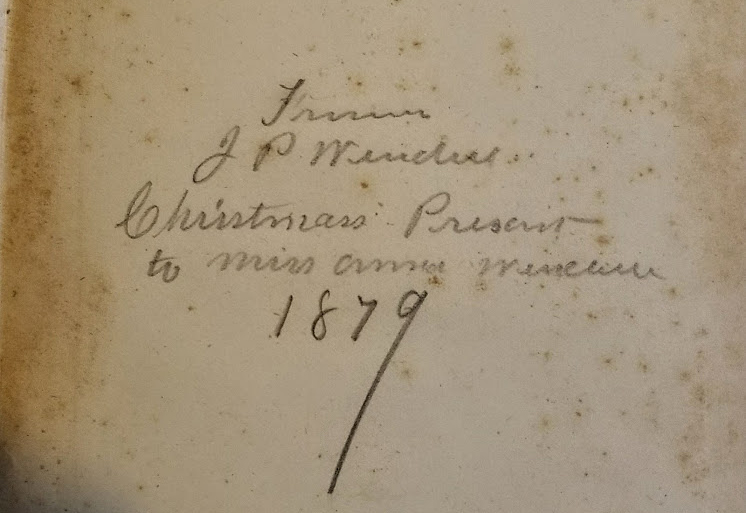 From
J P Wendell
Christmass Present
to miss anna Wendell
1879